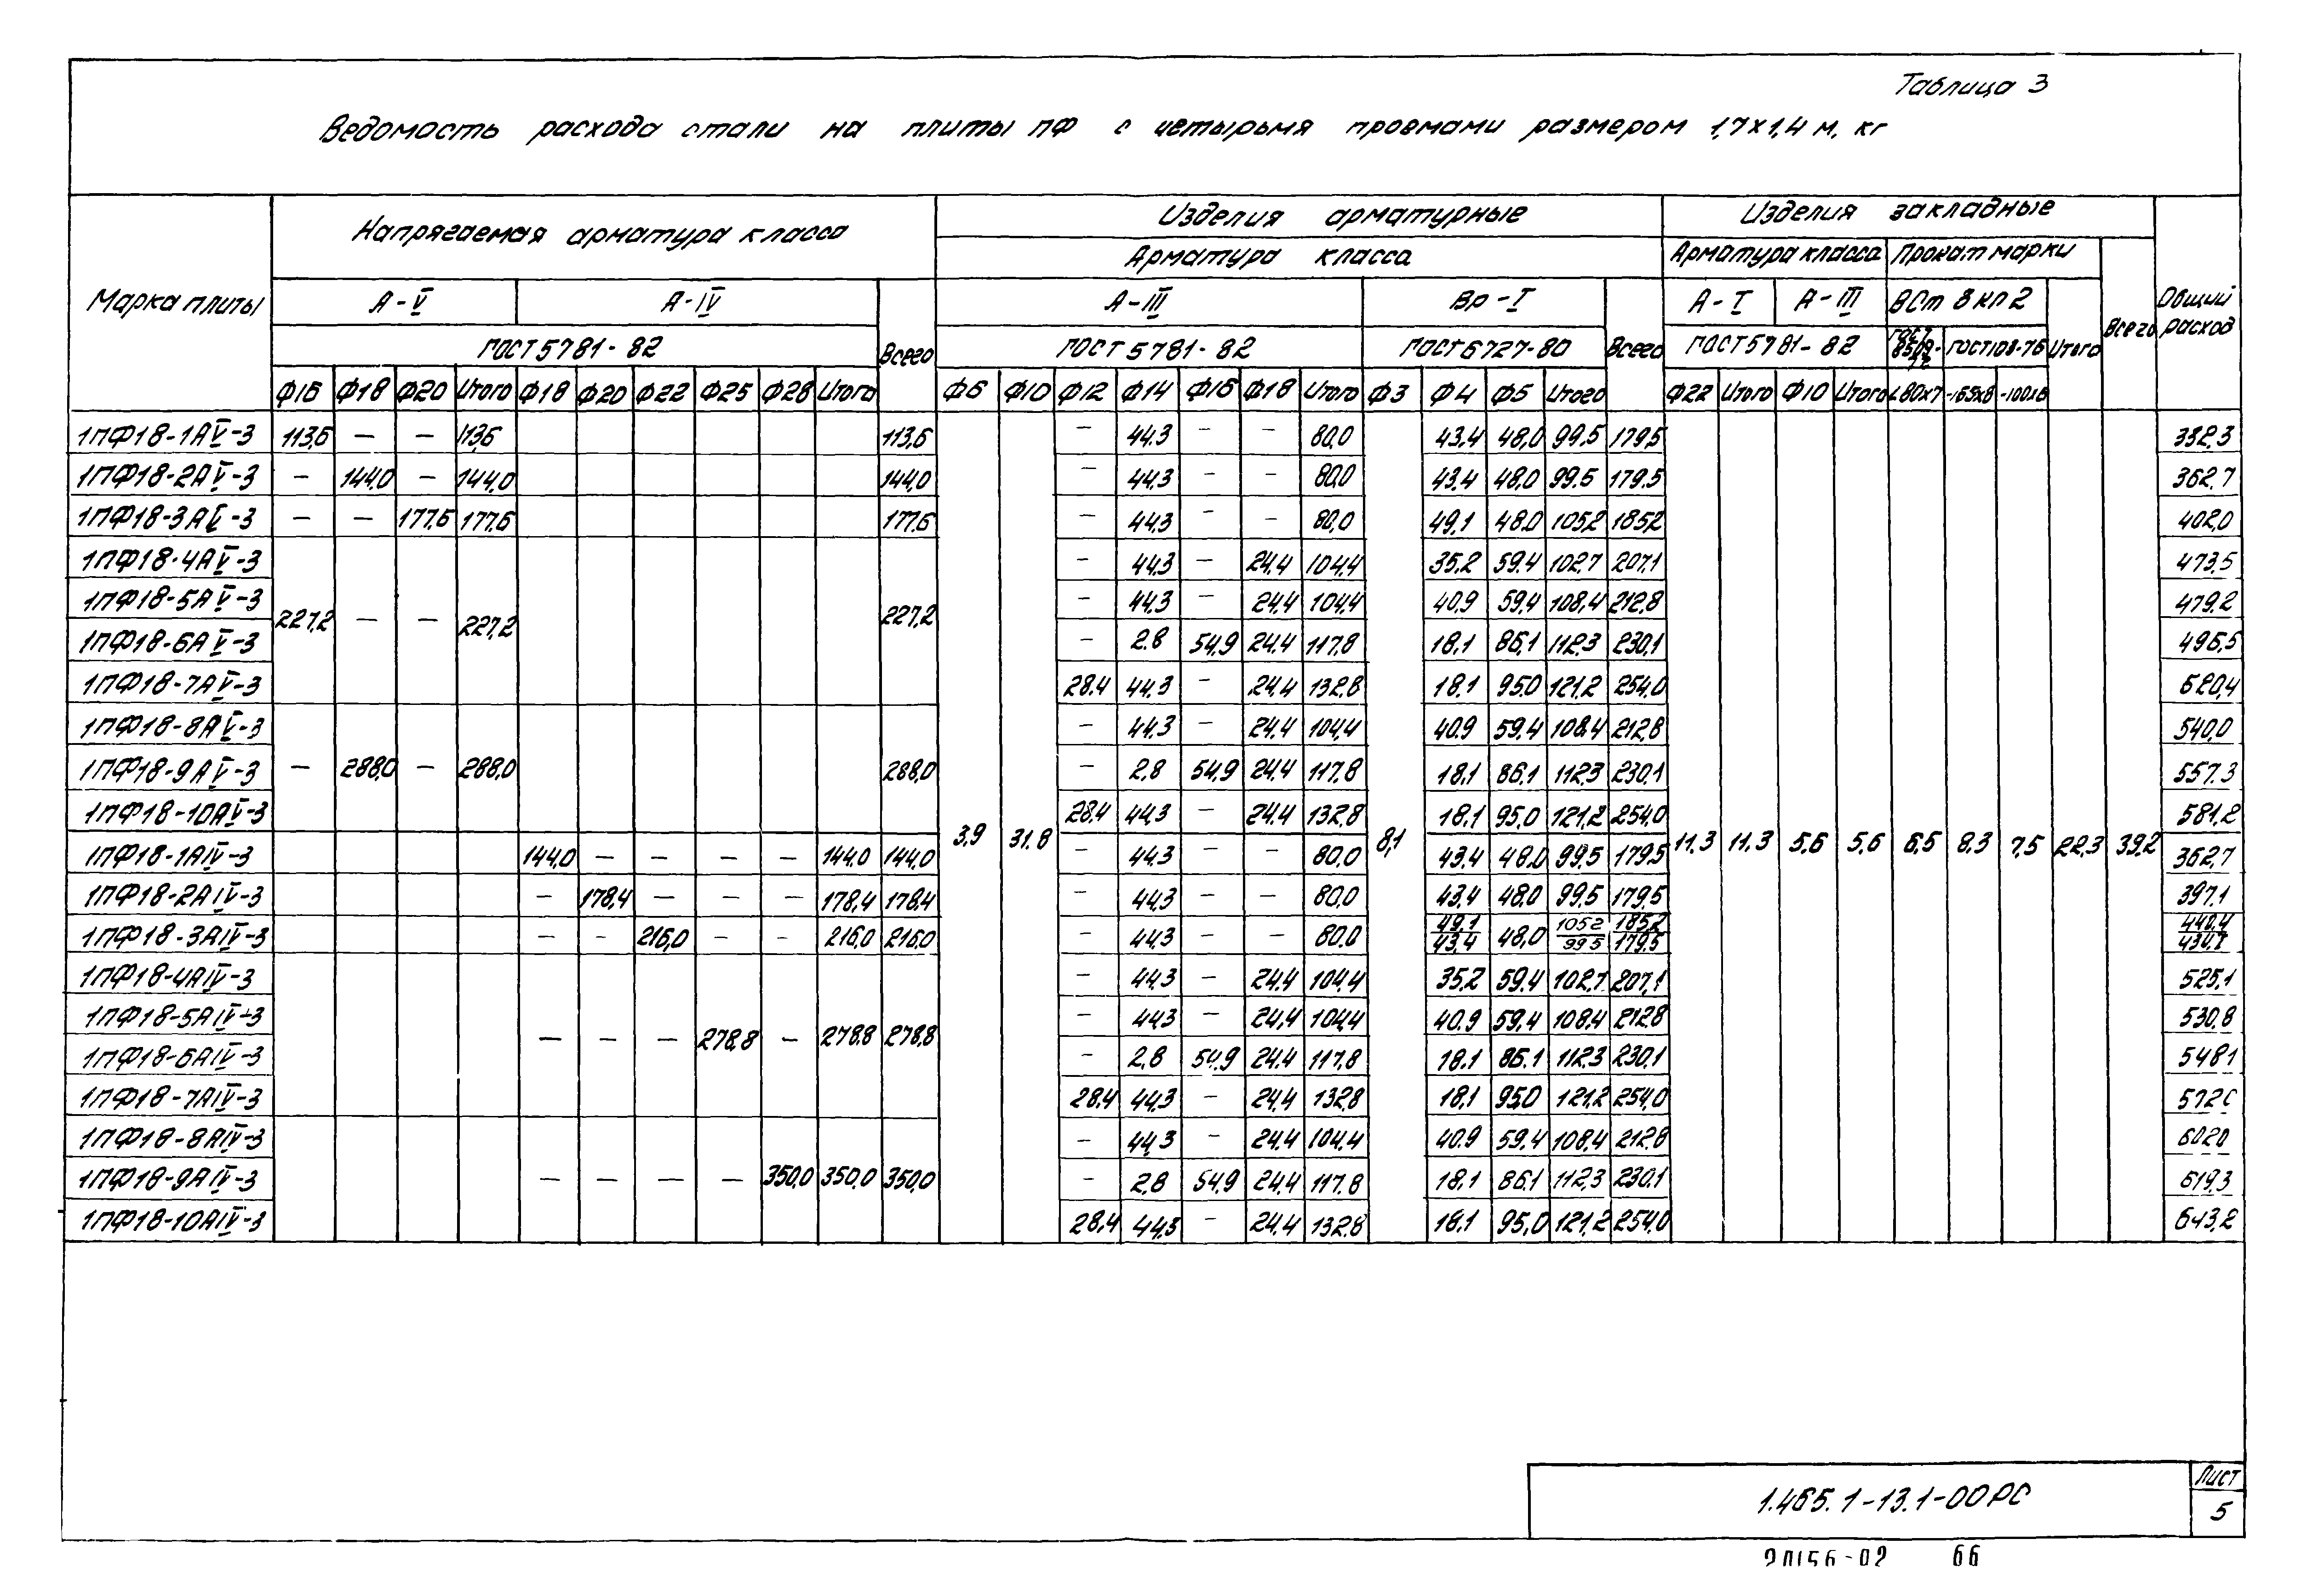 Таблица 3
Ведомость расхода стали на плиты ПФ с четырьмя проемами размером 1,7х1,4 м, кг
Марка плиты
Напрягаемая арматура класса
Изделия арматурные
Изделия закладные
Общий расход
Арматура класса
Арматура класса
Прокат марки
Всего
А-V
А-IV
Всего
А-III
Вр-I
Всего
А-I
А-III
ВСт 3 кп 2
Итого
ГОСТ 5781-82
ГОСТ 5781-82
ГОСТ 6727-80
ГОСТ 5781-82
ГОСТ 8509-72
ГОСТ 103-76
Ф16 Ф18 Ф20 Итого Ф18 Ф20 Ф22 Ф25 Ф28 Итого Ф6 Ф10 Ф12 Ф14 Ф16 Ф18 Итого Ф3 Ф4 Ф5 Итого Ф22 Итого Ф10 Итого L80х7 -165х8 -100х8
1ПФ18-1АV-3 113,6 — — 113,6 113,6 — 44.3 — — 80,0 43.4 48,0 99.5 179,5 332.3
1ПФ18-2АV-3 — 144,0 — 144,0 144,0 — 44.3 — — 80,0 43.4 48,0 99.5 179.5 362.7
1ПФ18-3АV-3 — — 177.6 177,6 177.6 — 44,3 — — 80,0 49,1 48.0 105,2 185,2 402,0
1ПФ18-4АV-3 — 44,3 — 24,4 104,4 35,2 59.4 102.7 207,1 473,5
1ПФ18-5АV-3 — 44,3 — 24.4 104,4 40,9 59,4 108,4 212,8 479.2
227,2 — — 227,2 227,2
1ПФ18-6АV-3 — 2.8 54,9 24.4 117,8 18,1 86,1 112,3 230,1 496,5
1ПФ18-7АV-3 28.4 44,3 — 24,4 132,8 18.1 95,0 121,2 254,0 520,4
1ПФ18-8АV-3 — 44,3 — 24.4 104,4 40.9 59.4 108.4 212,8 540,0
1ПФ18-9АV-3 — 288,0 — 288,0 288,0 — 2,8 54,9 24.4 117,8 18,1 86.1 112,3 230,1 557.3
1ПФ18-10АV-3 28,4 44,3 — 24,4 132,8 18.1 95,0 121,2 254,0 581,2
3,9 31.8 8,1 11.3 11,3 5,6 5,6 6,5 8.3 7,5 22,3 39,2
1ПФ18-1АIV-3 144,0 — — — — 144,0 144,0 — 44.3 — — 80,0 43,4 48,0 99,5 179,5 362,7
1ПФ18-2АIV-3 — 178,4 — — — 178,4 178,4 — 44.3 — — 80,0 43.4 48,0 99,5 179,5 397,1
1ПФ18-3АIV-3 — — 216,0 — — 216,0 216,0 — 44,3 — — 80,0 49,1/43,4 48,0 105,2/99,5 185,2/179,5 440,4/434,7
1ПФ18-4АIV-3 — 44,3 — 24.4 104,4 35,2 59.4 102,7 207,1 525,1
1ПФ18-5АIV-3 — 44,3 — 24,4 104,4 40.9 59,4 108,4 212,8 530,8
— — — 278,8 — 278.8 278,8
1ПФ18-6АIV-3 — 2,8 54,9 24.4 117,8 18.1 86.1 112,3 230,1 548,1
1ПФ18-7АIV-3 28,4 44,3 — 24,4 132,8 18,1 95,0 121,2 254,0 572,0
1ПФ18-8АIV-3 — 44,3 — 24,4 104,4 40.9 59.4 108,4 212,8 602,0
1ПФ18-9АIV-3 — — — — 350,0 350,0 350,0 — 2,8 54,9 24,4 117.8 18.1 86,1 112,3 230,1 619,3
1ПФ18-10АIV-3 28.4 44,3 — 24,4 132,8 18.1 95,0 121,2 254,0 643,2
1.465.1-13.1-00РС
Лист
5
20156-02 66